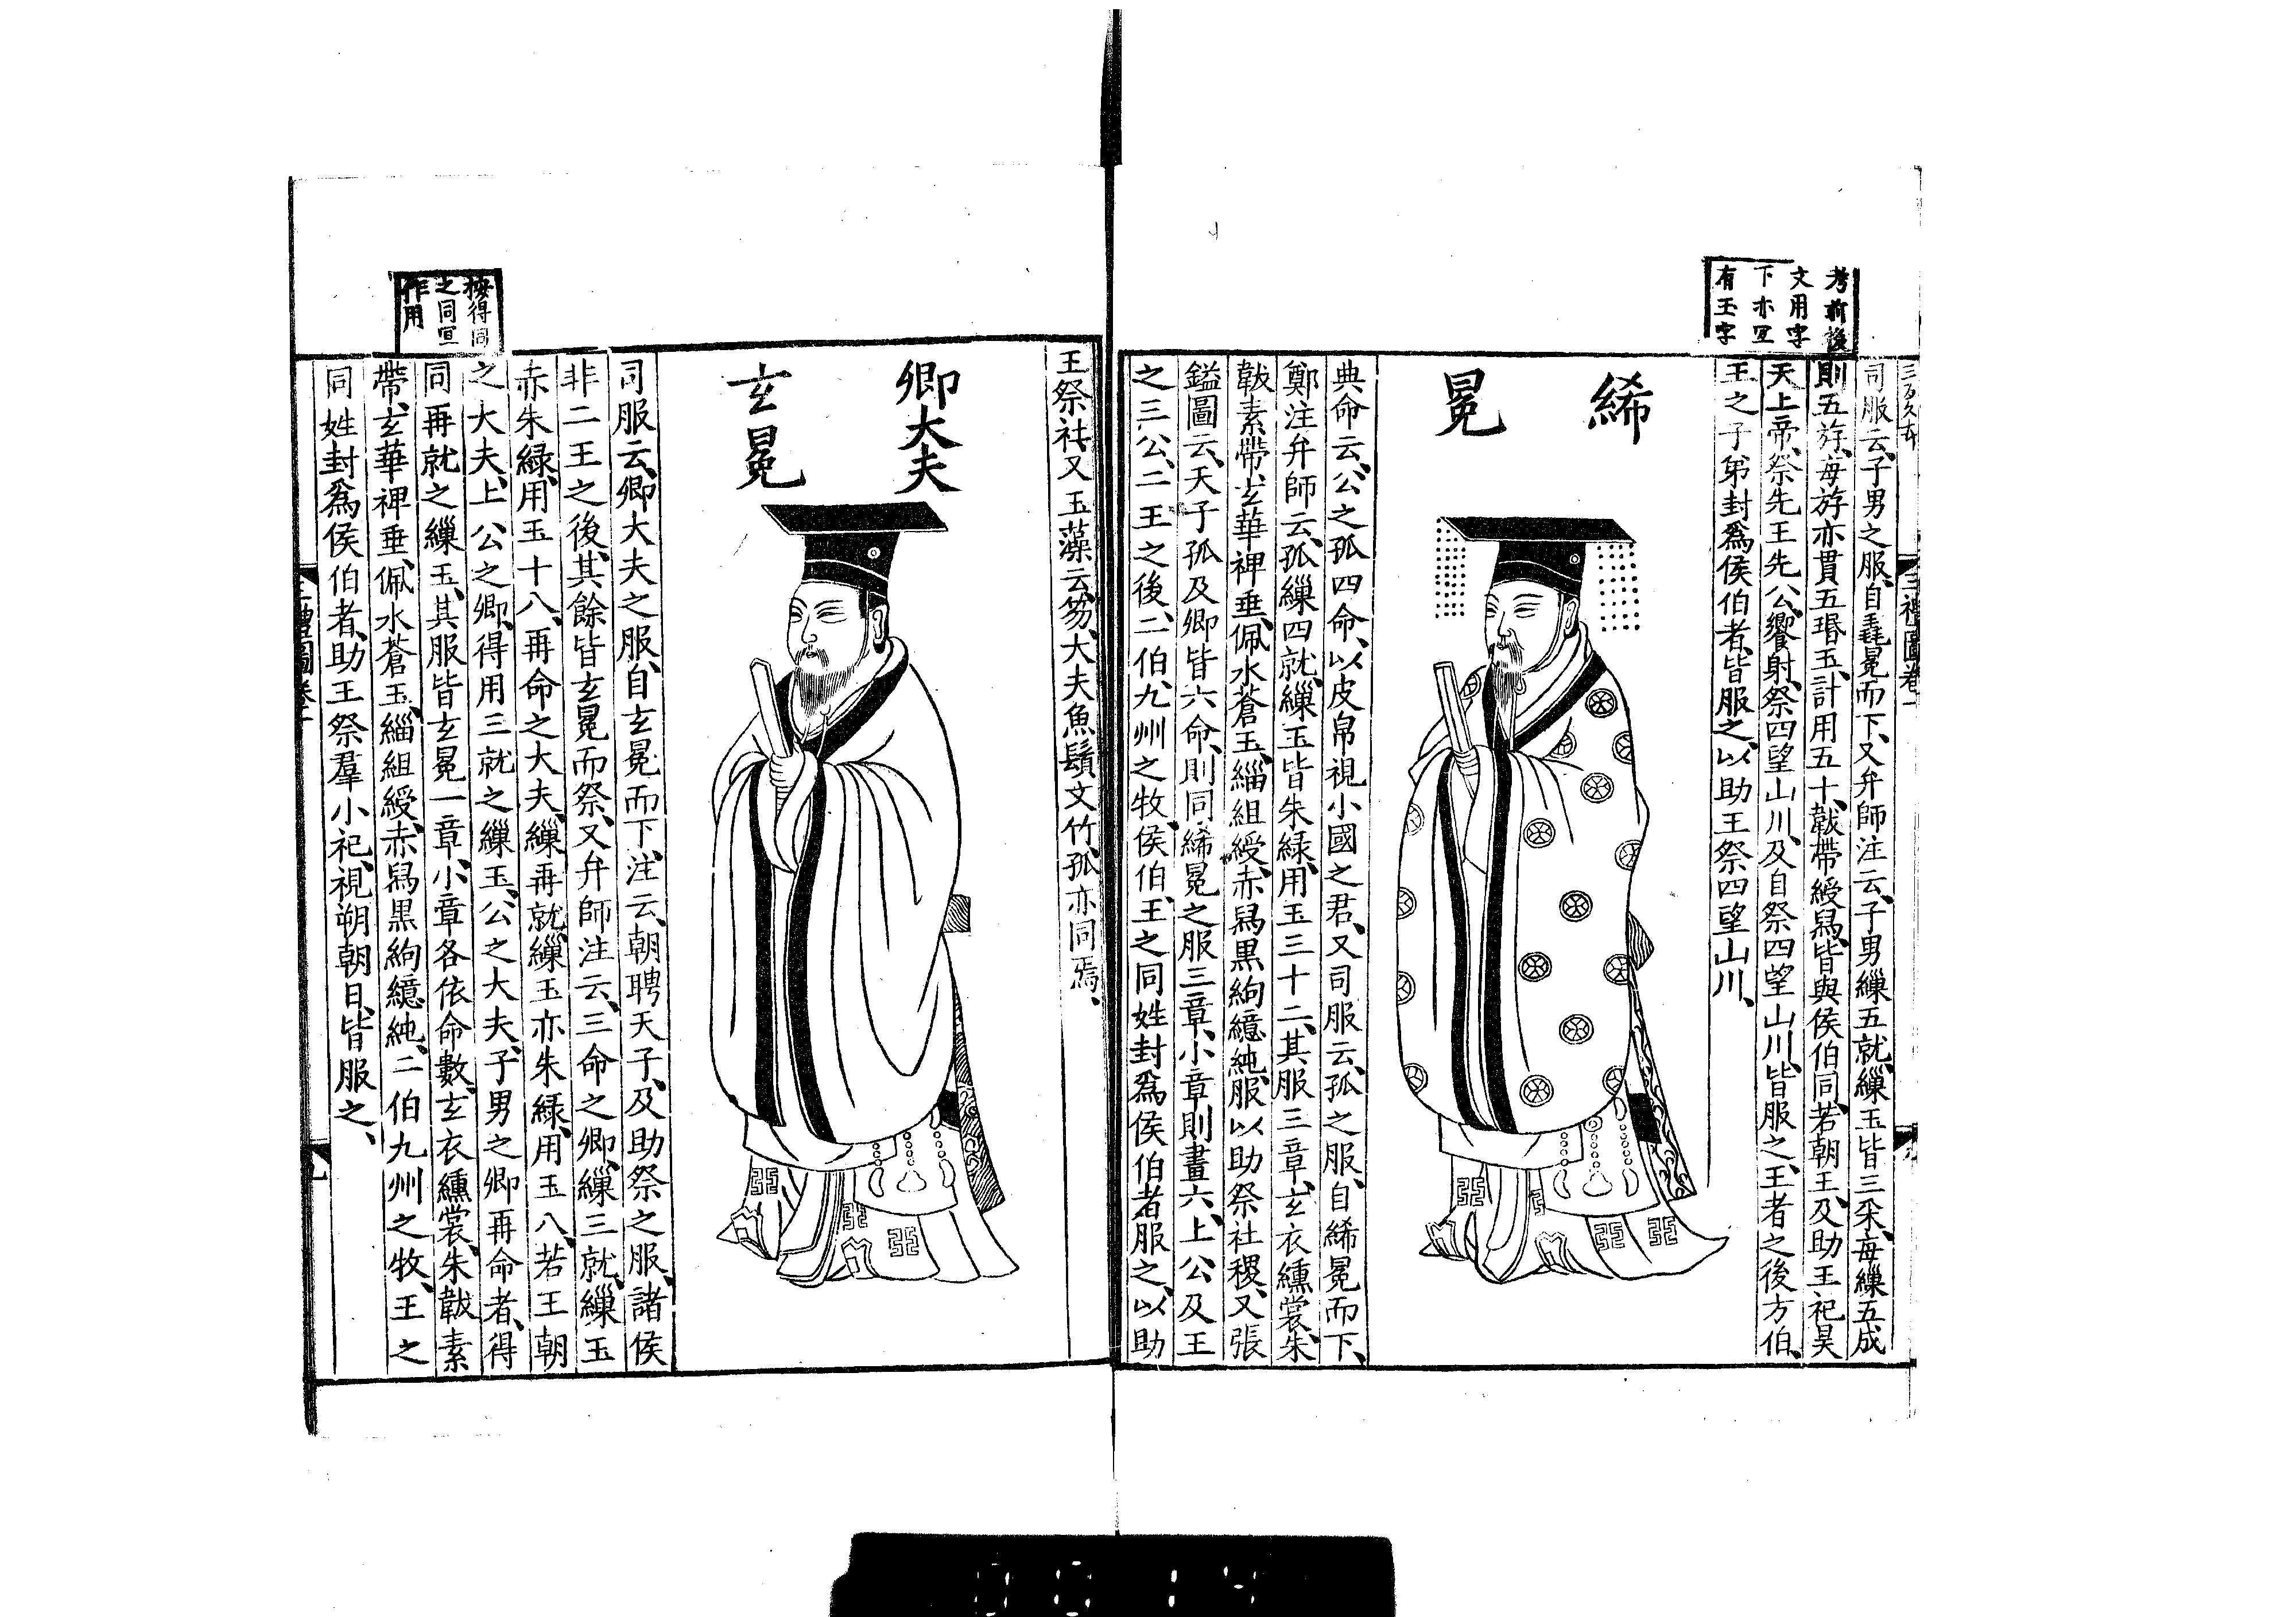 考前後
文用字
下亦宜
有玉字
三禮圖卷一
司服云、子男之服、自毳冕而下、又弁師注云、子男繅五就、繅玉皆三采、每繅五成
則五斿、每斿亦貫五瑉玉、計用五十、韍帶綬舄、皆與侯伯同、若朝王、及助王祀昊
天上帝、祭先王先公、饗射、祭四望山川、及自祭四望山川、皆服之、王者之後方伯、
王之子弟封爲侯伯者、皆服之、以助王祭四望山川、
絺
冕
典命云、公之孤四命、以皮帛視小國之君、又司服云、孤之服、自絺冕而下、
鄭注弁師云、孤繅四就、繅玉皆朱綠、用玉三十二、其服三章、玄衣纁裳、朱
韍素帶、玄華裨垂、佩水蒼玉、緇組綬、赤舄黑絇繶純、服以助祭社稷、又張
鎰圖云、天子孤及卿皆六命、則同絺冕之服三章、小章則畫六、上公及王
之三公、二王之後、二伯、九州之牧、侯伯、王之同姓封爲侯伯者服之、以助
王祭社、又玉藻云、笏、大夫魚鬚文竹、孤亦同焉、
卿大夫
玄冕
按得同
之同宜
作用
司服云、卿大夫之服、自玄冕而下、注云、朝聘天子、及助祭之服、諸侯
非二王之後、其餘皆玄冕而祭、又弁師注云、三命之卿、繅三就、繅玉
赤朱綠、用玉十八、再命之大夫、繅再就、繅玉亦朱綠、用玉八、若王朝
之大夫、上公之卿、得用三就之繅玉、公之大夫、子男之卿再命者、得
同再就之繅玉、其服皆玄冕一章、小章各依命數、玄衣纁裳、朱韍素
帶、玄華裨垂、佩水蒼玉、緇組綬、赤舄黑絇繶純、二伯九州之牧、王之
同姓封爲侯伯者、助王祭羣小祀、視朔朝日、皆服之、
三禮圖卷一
九